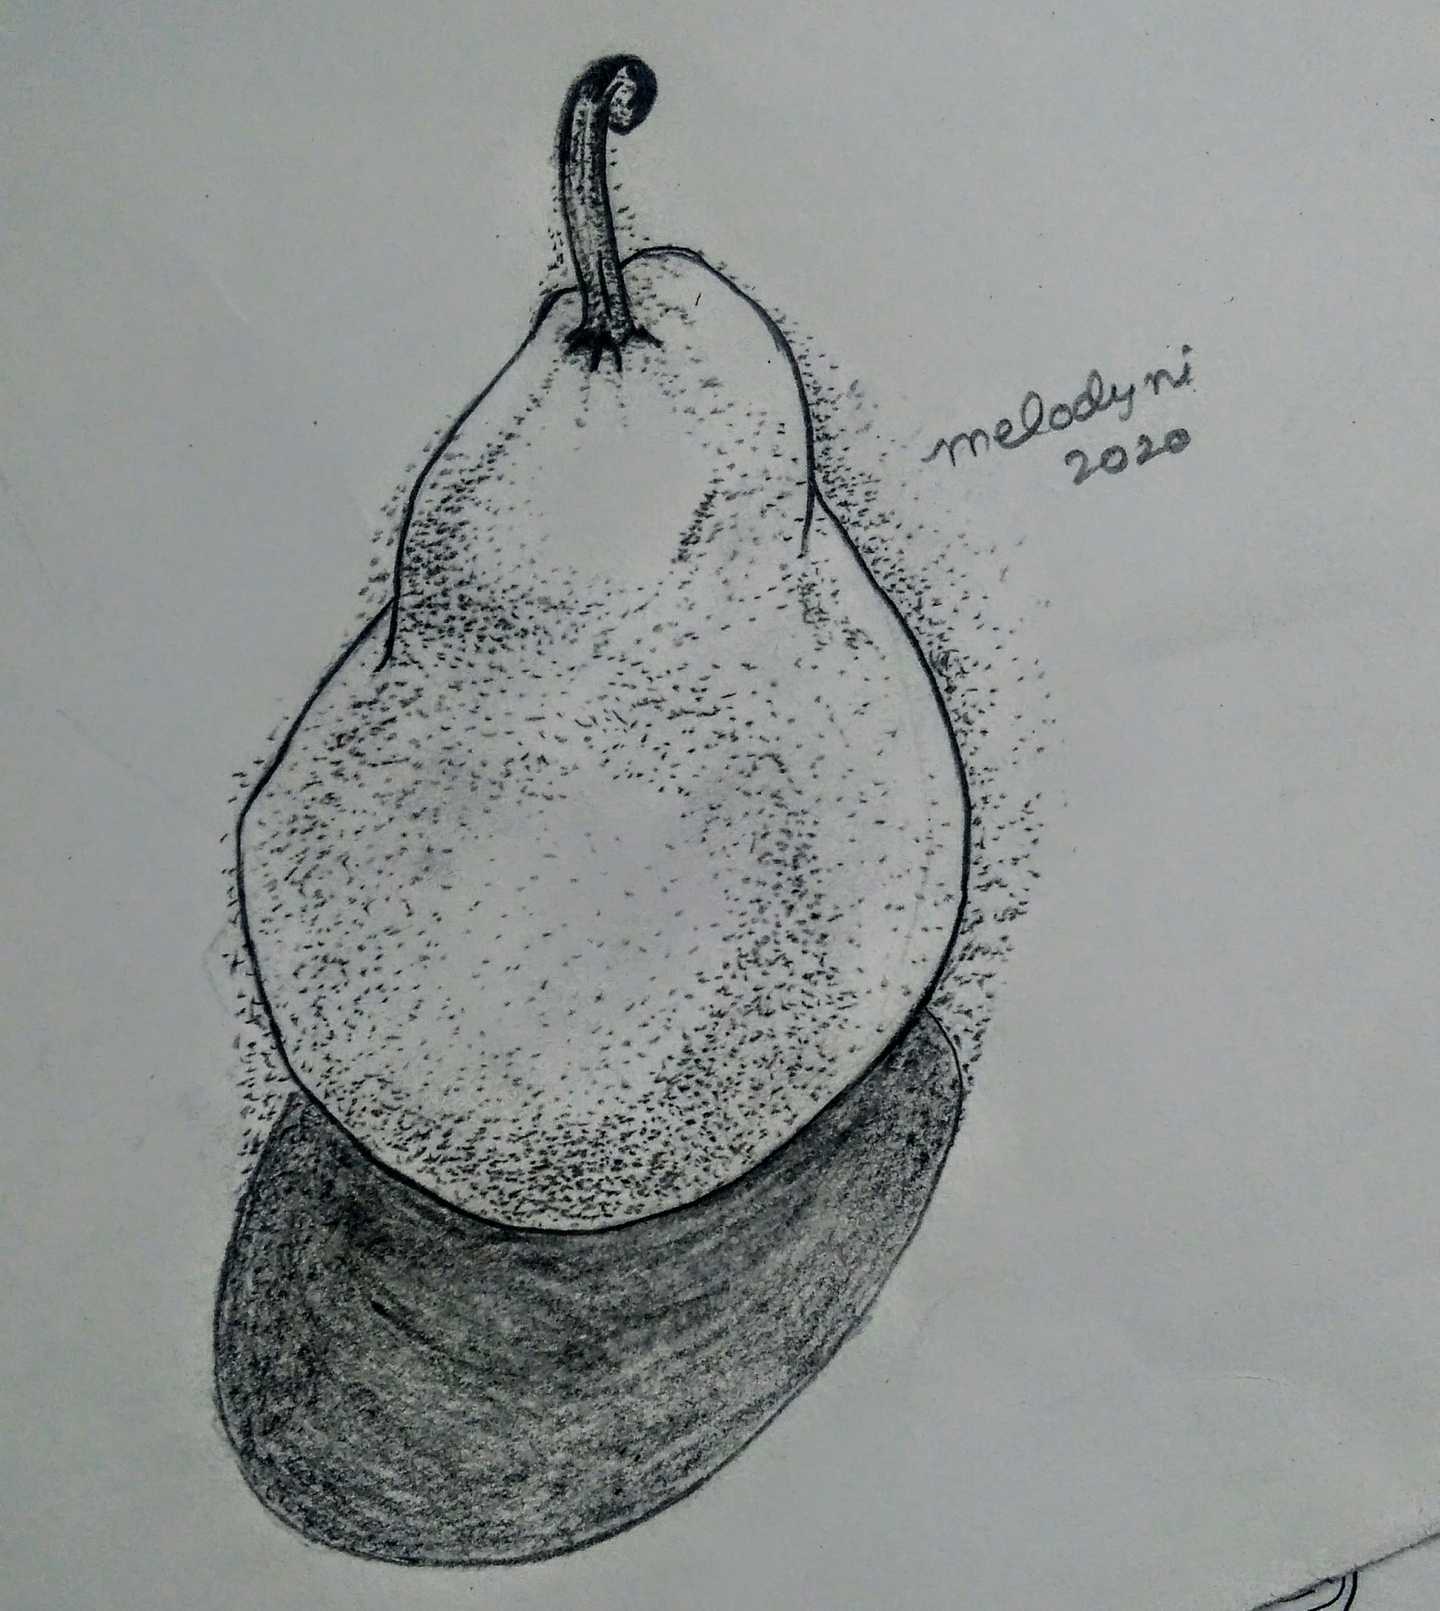 melodyni
2020